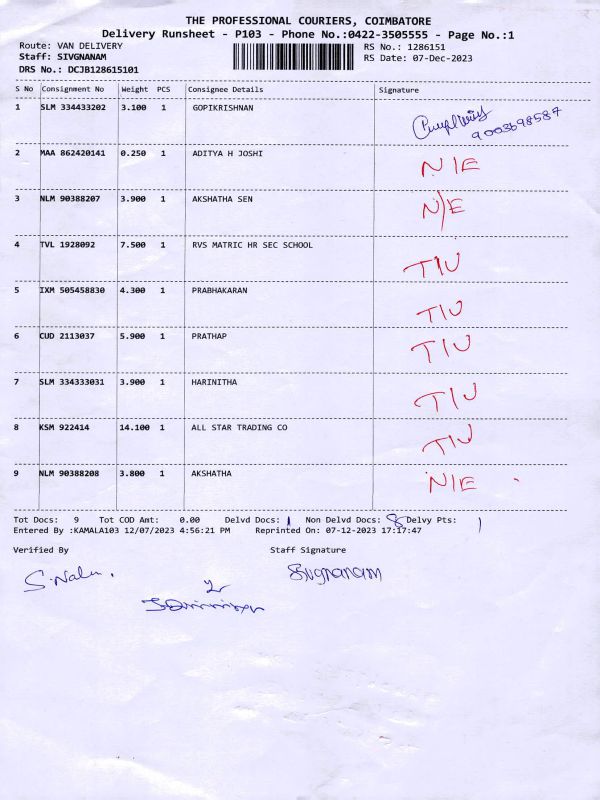 THE PROFESSIONAL COURIERS, COIMBATORE
Delivery Runsheet - P103 - Phone No.:0422-3505555 - Page No.:1
Route: VAN DELIVERY RS No.: 1286151
Staff: SIVGNANAM RS Date: 07-Dec-2023
DRS No.: DCJB128615101
S No Consignment No Weight PCS Consignee Details Signature
1 SLM 334433202 3.100 1 GOPIKRISHNAN
9003698587
2 MAA 862420141 0.250 1 ADITYA H JOSHI N/E
3 NLM 90388207 3.900 1 AKSHATHA SEN N/E
4 TVL 1928092 7.500 1 RVS MATRIC HR SEC SCHOOL T/U
5 IXM 505458830 4.300 1 PRABHAKARAN T/U
6 CUD 2113037 5.900 1 PRATHAP T/U
7 SLM 334333031 3.900 1 HARINITHA T/U
8 KSM 922414 14.100 1 ALL STAR TRADING CO T/U
9 NLM 90388208 3.800 1 AKSHATHA N/E
Tot Docs: 9 Tot COD Amt: 0.00 Delvd Docs: 1 Non Delvd Docs: 8 Delvy Pts: 1
Entered By :KAMALA103 12/07/2023 4:56:21 PM Reprinted On: 07-12-2023 17:17:47
Verified By Staff Signature
Sivgnanam